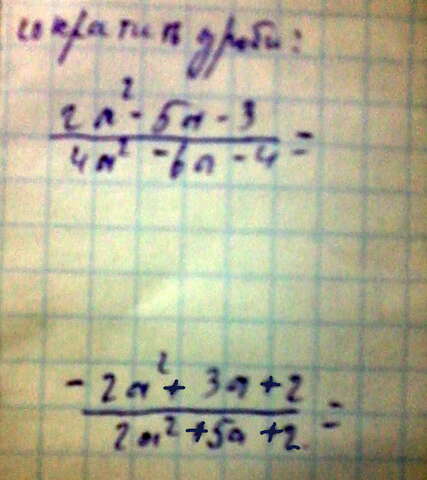 сократить дроби:
2a² - 5a - 3
4a² - 6a - 4 =
- 2a² + 3a + 2
2a² + 5a + 2 =